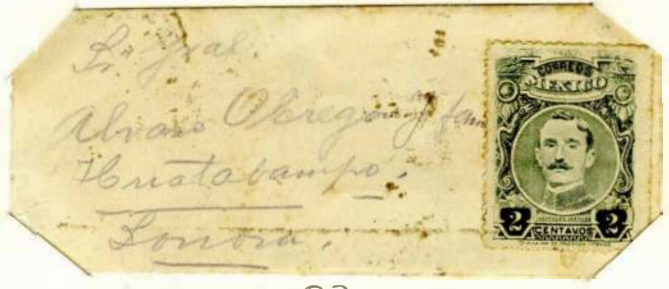 Sr. Gral.
Alvaro Obregon y fam
Huatabampo.
Sonora.
CORREOS
MEXICO
2 CENTAVOS 2